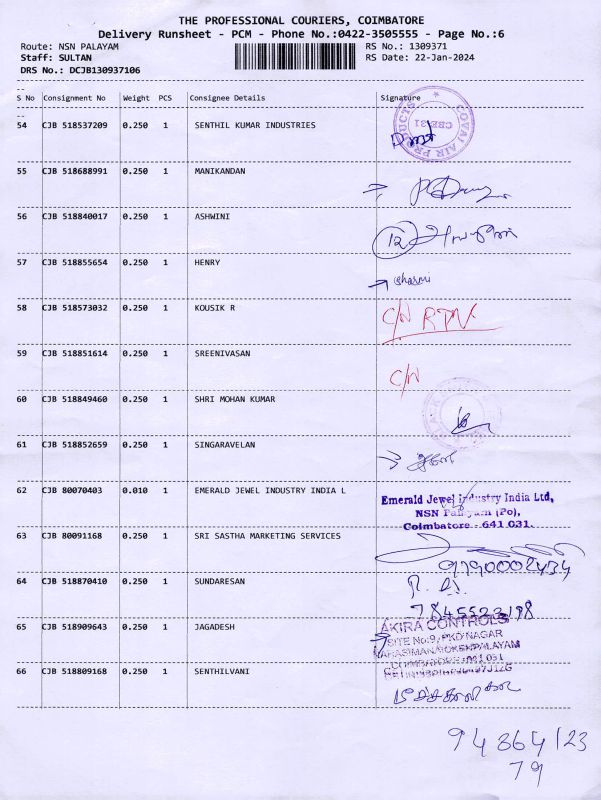 THE PROFESSIONAL COURIERS, COIMBATORE
Delivery Runsheet - PCM - Phone No.:0422-3505555 - Page No.:6
Route: NSN PALAYAM RS No.: 1309371
Staff: SULTAN RS Date: 22-Jan-2024
DRS No.: DCJB130937106
S No Consignment No Weight PCS Consignee Details Signature
54 CJB 518537209 0.250 1 SENTHIL KUMAR INDUSTRIES
COVAI AIR PRODUCTS
CBE-31
55 CJB 518688991 0.250 1 MANIKANDAN
56 CJB 518840017 0.250 1 ASHWINI
12
57 CJB 518855654 0.250 1 HENRY
sharmi
58 CJB 518573032 0.250 1 KOUSIK R
C/N RTN
59 CJB 518851614 0.250 1 SREENIVASAN
C/N
60 CJB 518849460 0.250 1 SHRI MOHAN KUMAR
61 CJB 518852659 0.250 1 SINGARAVELAN
62 CJB 80070403 0.010 1 EMERALD JEWEL INDUSTRY INDIA L
Emerald Jewel Industry India Ltd,
NSN Palayam (Po),
Coimbatore - 641 031.
63 CJB 80091168 0.250 1 SRI SASTHA MARKETING SERVICES
9790002434
64 CJB 518870410 0.250 1 SUNDARESAN
7845523198
65 CJB 518909643 0.250 1 JAGADESH
AKIRA CONTROLS
SITE No:9, PKD NAGAR
COIMBATORE-641 031
66 CJB 518809168 0.250 1 SENTHILVANI
94864123
79